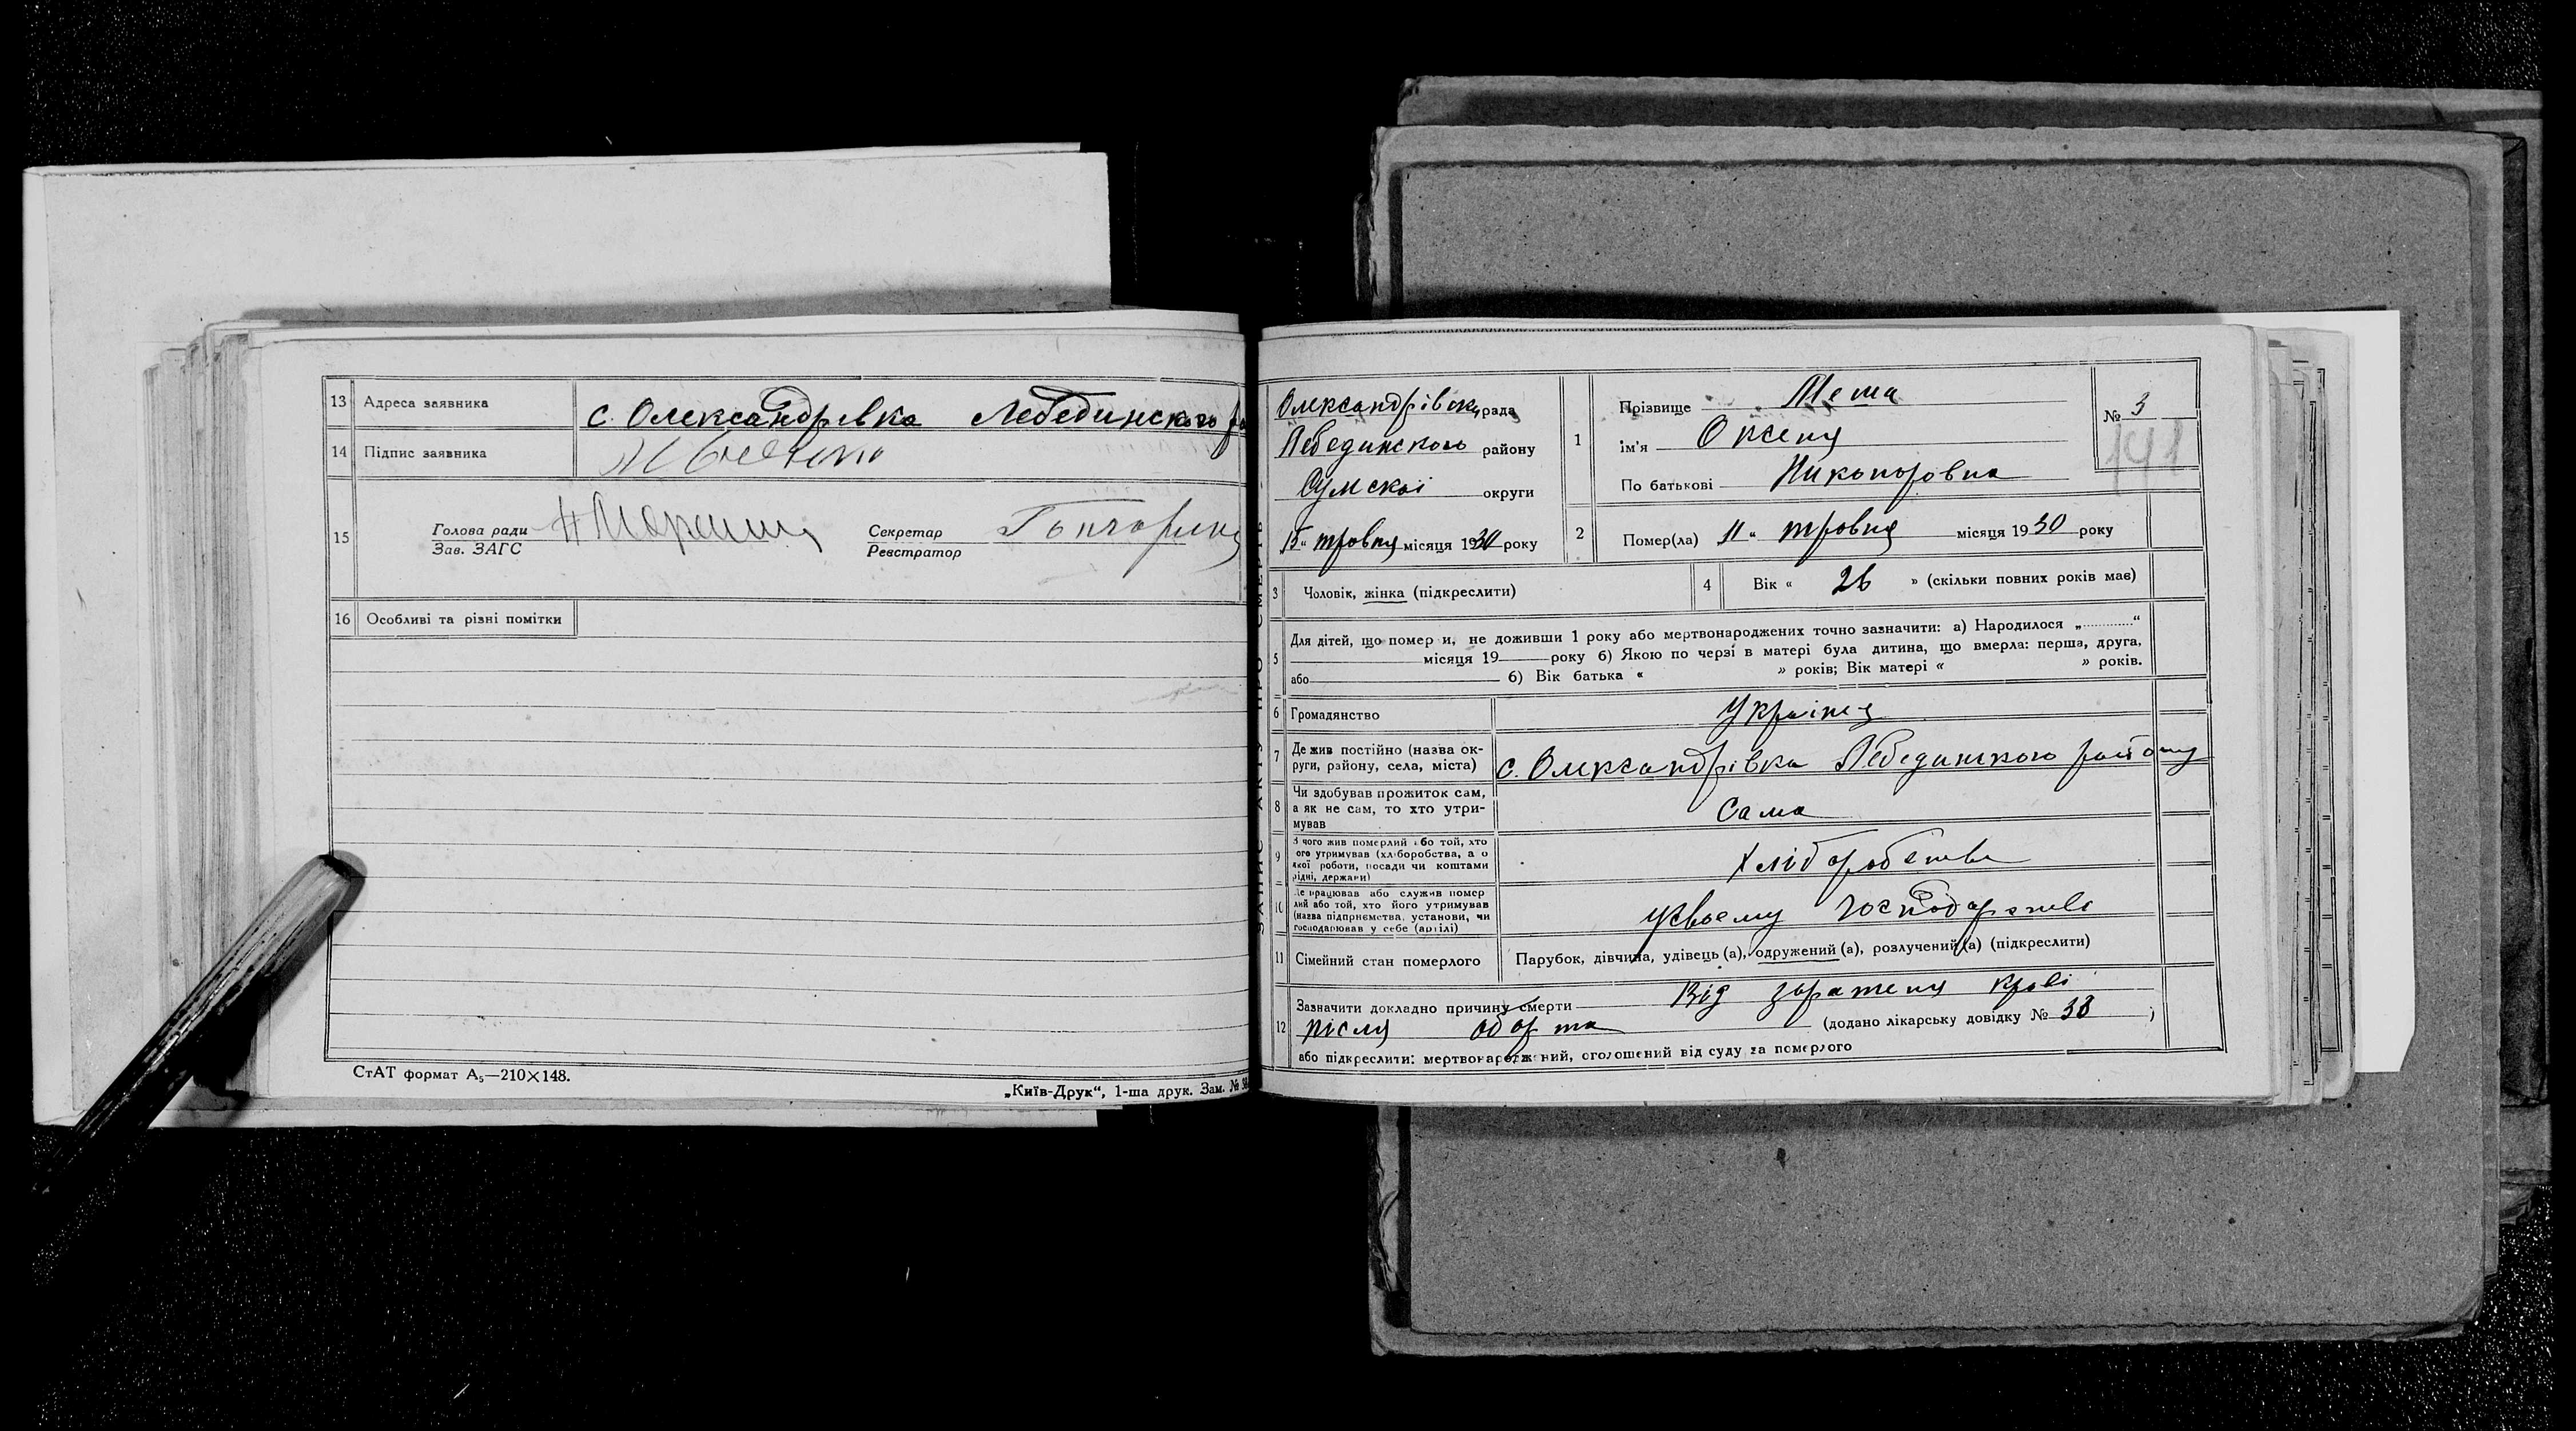 13 Адреса заявника с. Олександрівка Лебединского
14 Підпис заявника
15 Голова ради Секретар
Зав. ЗАГС Реєстратор
16 Особливі та різні помітки
СтАТ формат А₅—210×148.
„Київ-Друк“, 1-ша друк. Зам. №
Олександрівск рада
Лебединского району
Сумскої округи
„15“ травня місяця 1930 року
1 Прізвище
ім'я Оксеня
По батькові Никоноровна
№ 3
141
2 Помер(ла) 11 „ травня місяця 1930 року
3 Чоловік, жінка (підкреслити)
4 Вік « 26 » (скільки повних років має)
5 Для дітей, що помер и, не доживши 1 року або мертвонароджених точно зазначити: а) Народилося „ “
місяця 19 року б) Якою по черзі в матері була дитина, що вмерла: перша, друга,
або б) Вік батька « » років; Вік матері « » років.
6 Громадянство
7 Де жив постійно (назва ок-
руги, району, села, міста) с. Олександрівка Лебединского району
8 Чи здобував прожиток сам,
а як не сам, то хто утри-
мував Сама
9 З чого жив померлий або той, хто
ого утримував (хліборобства, а о
якої роботи, посади чи коштами
рідні, держави) Хліборобства
10 Де працював або служив помер
лий або той, хто його утримував
(назва підприємства, установи, чи
господарював у себе (артілі) у своему господарстві
11 Сімейний стан померлого Парубок, дівчина, удівець (а), одружений (а), розлучений (а) (підкреслити)
12 Зазначити докладно причину смерти Від зараженя крові
після аборта (додано лікарську довідку № 38 ;
або підкреслити: мертвонароджений, оголошений від суду за померлого